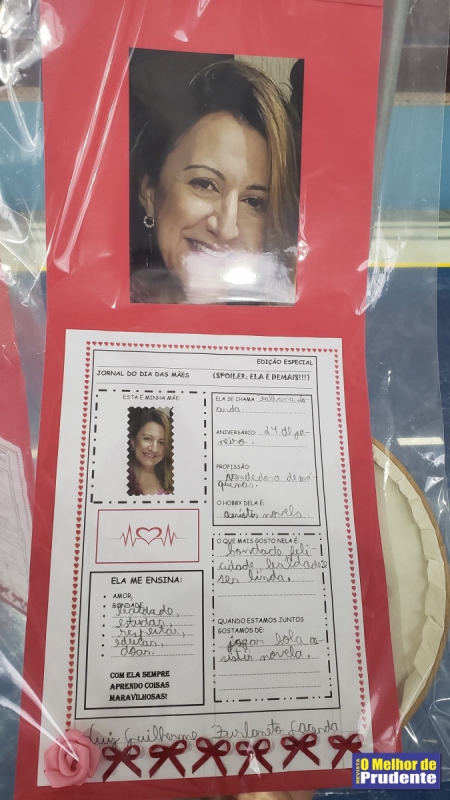 EDIÇÃO ESPECIAL
JORNAL DO DIA DAS MÃES (SPOILER: ELA É DEMAIS!!!)
ESTA É MINHA MÃE:
ELA SE CHAMA
ANIVERSÁRIO: 24 de ja-
neiro.
PROFISSÃO:
vendedora de má
quinas.
O HOBBY DELA É:
assistir novela.
O QUE MAIS GOSTO NELA É:
bondade feli-
cidade lealdade
ser linda.
QUANDO ESTAMOS JUNTOS
GOSTAMOS DE:
jogar bola as-
sistir novela.
ELA ME ENSINA:
• AMOR,
• BONDADE,
lealdade,
estudar,
respeitar,
educar,
doar.
COM ELA SEMPRE
APRENDO COISAS
MARAVILHOSAS!
Luiz Guilherme Furlaneto Lacerda
REVISTA
O Melhor de
Prudente